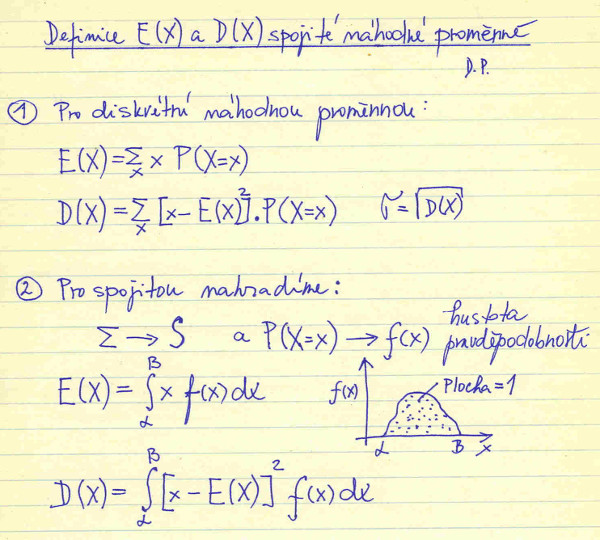 Definice E(X) a D(X) spojité náhodné proměnné
D.P.
① Pro diskrétní náhodnou proměnnou:
E(X) = Σₓ x P(X=x)
D(X) = Σₓ [x − E(X)]². P(X=x)   σ = √D(X)
② Pro spojitou nahradíme:
Σ → ∫ a P(X=x) → f(x) hustota pravděpodobnosti
E(X) = ∫_α^B x f(x) dx
f(x) Plocha = 1
α B x
D(X) = ∫_α^B [x − E(X)]² f(x) dx